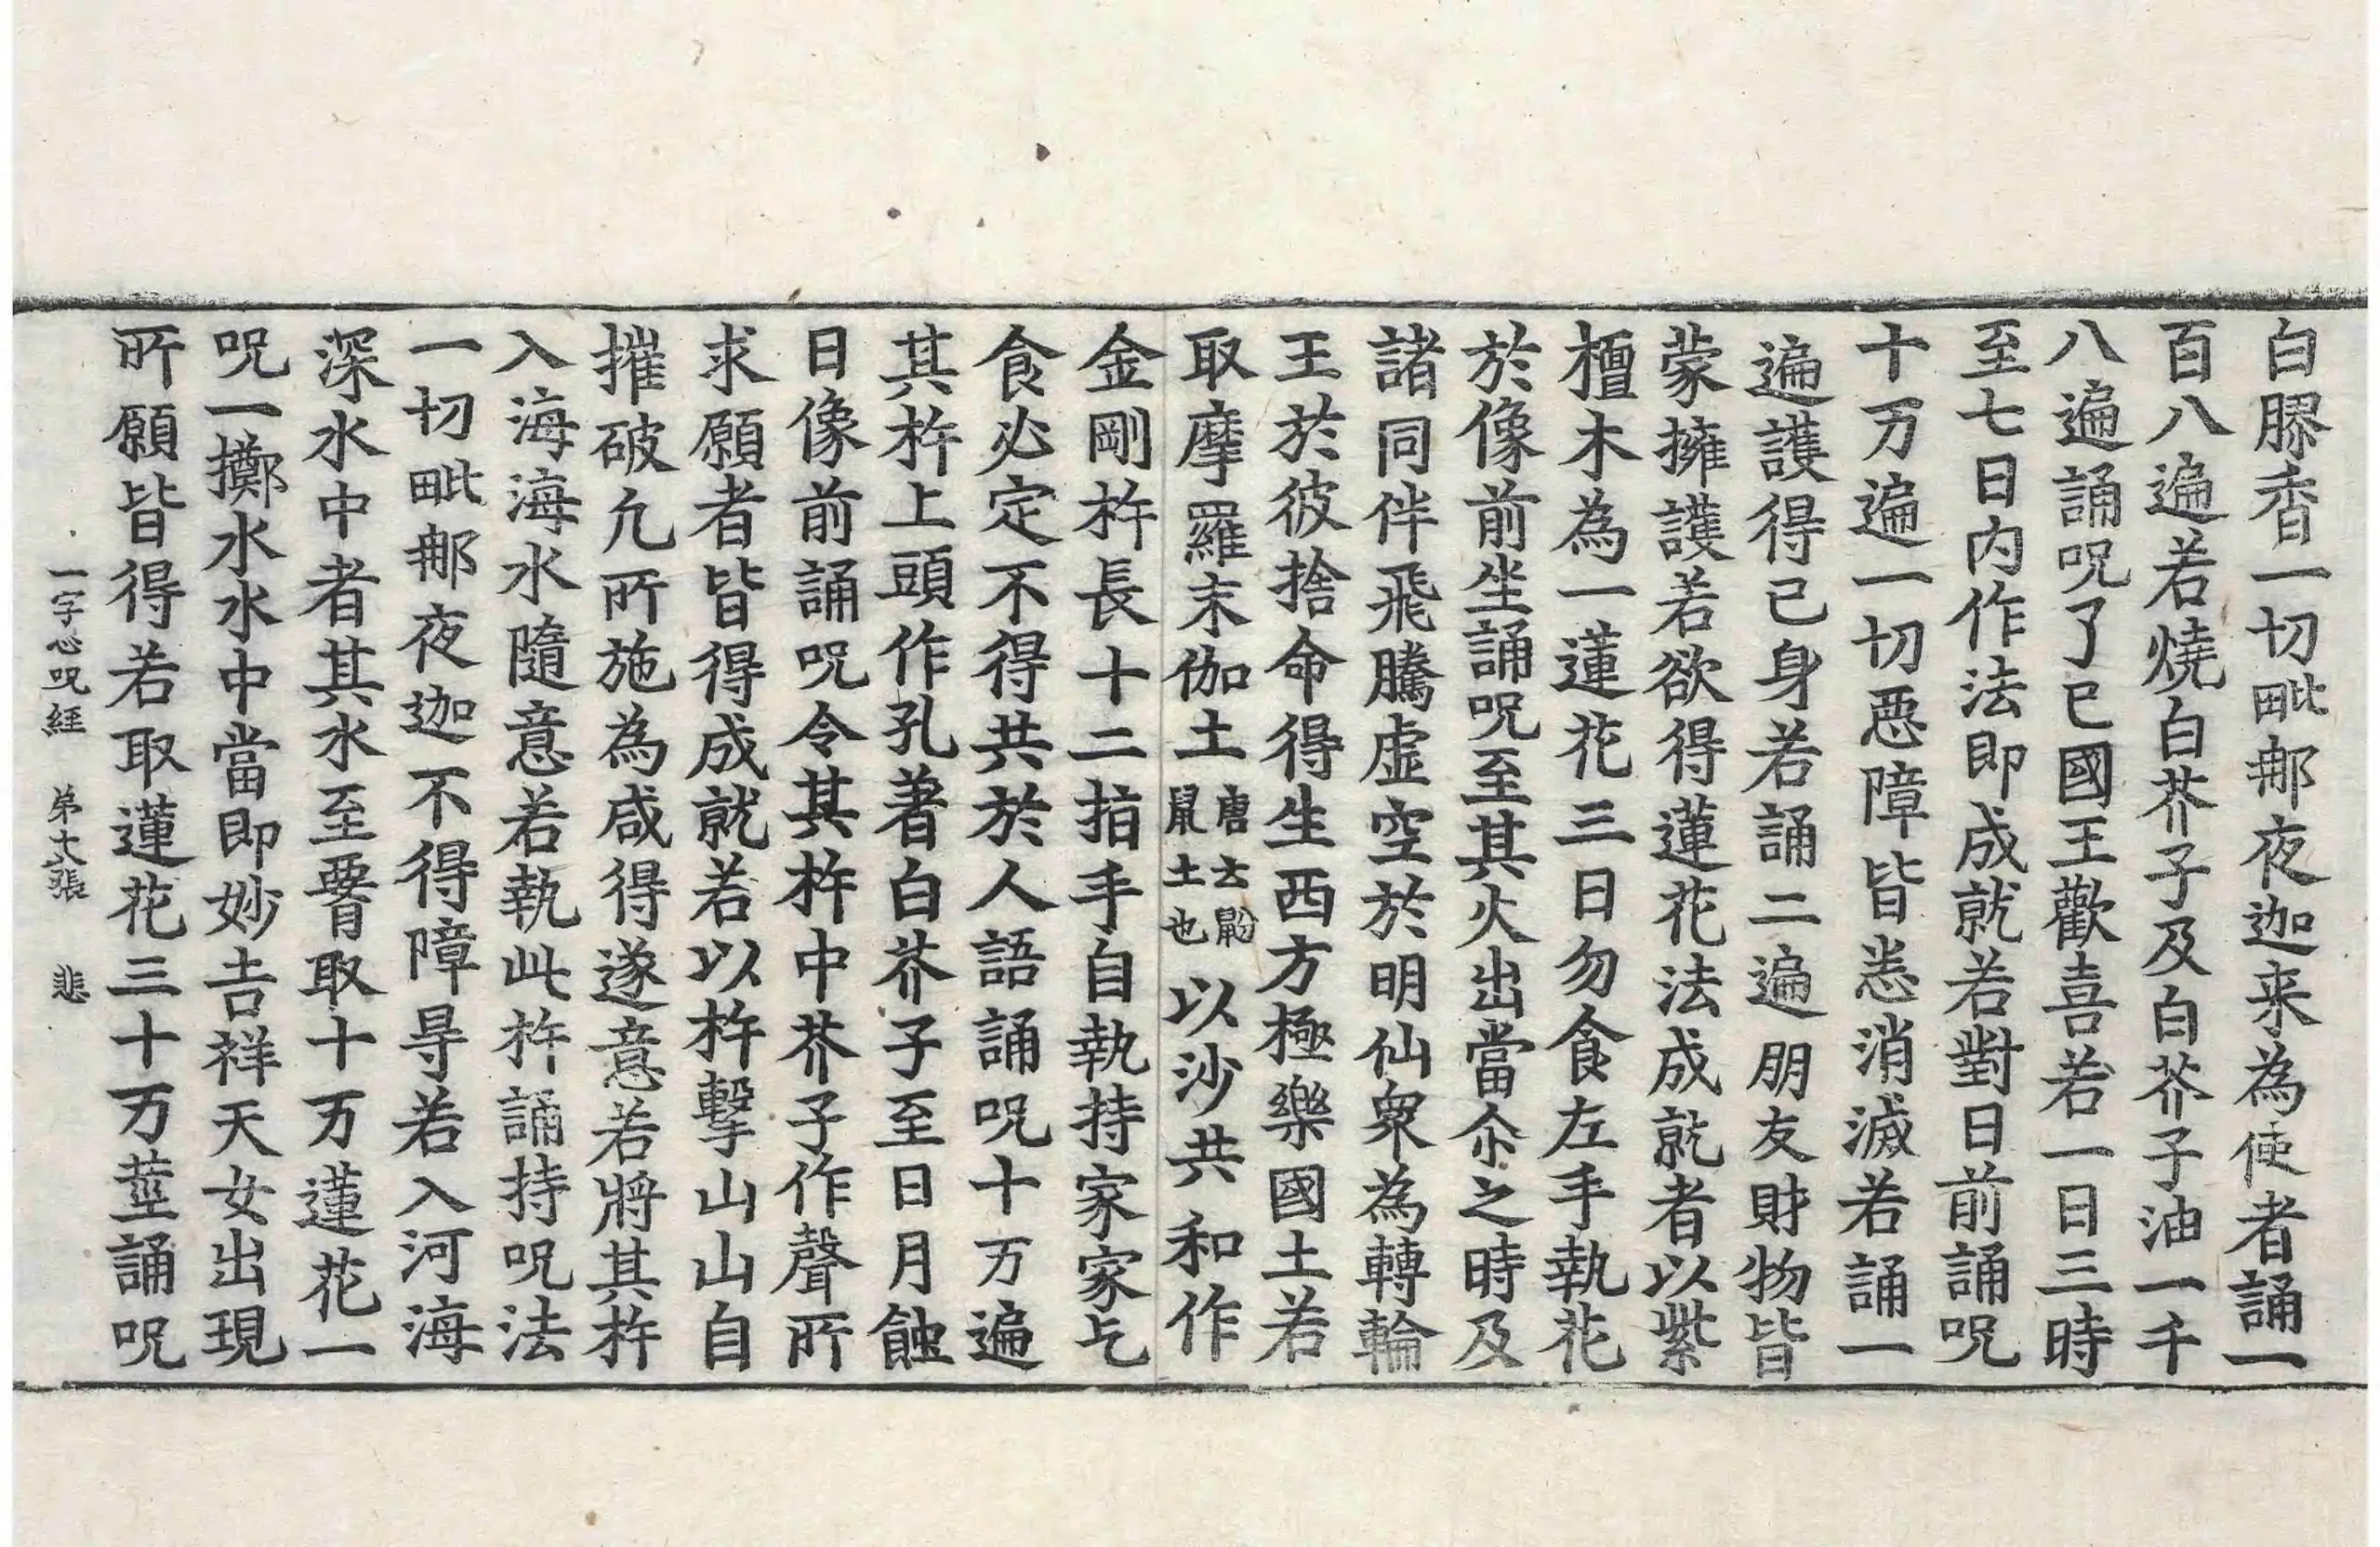 白膠香一切毗那夜迦来為使者誦一
百八遍若燒白芥子及白芥子油一千
八遍誦呪了已國王歡喜若一日三時
至七日内作法即成就若對日前誦呪
十万遍一切惡障皆悉消滅若誦一
遍護得已身若誦二遍朋友財物皆
蒙擁護若欲得蓮花法成就者以紫
檀木為一蓮花三日勿食左手執花
於像前坐誦呪至其火出當尒之時及
諸同伴飛騰虛空於明仙衆為轉輪
王於彼捨命得生西方極樂國土若
取摩羅末伽土唐云鼢鼠土也以沙共和作
金剛杵長十二指手自執持家家乞
食必定不得共於人語誦呪十万遍
其杵上頭作孔著白芥子至日月蝕
日像前誦呪令其杵中芥子作聲所
求願者皆得成就若以杵擊山山自
摧破凢所施為咸得遂意若將其杵
入海海水隨意若執此杵誦持呪法
一切毗那夜迦不得障㝵若入河海
深水中者其水至𦝫取十万蓮花一
呪一擲水水中當即妙吉祥天女出現
所願皆得若取蓮花三十万莖誦呪
一字心呪經 苐六張 悲